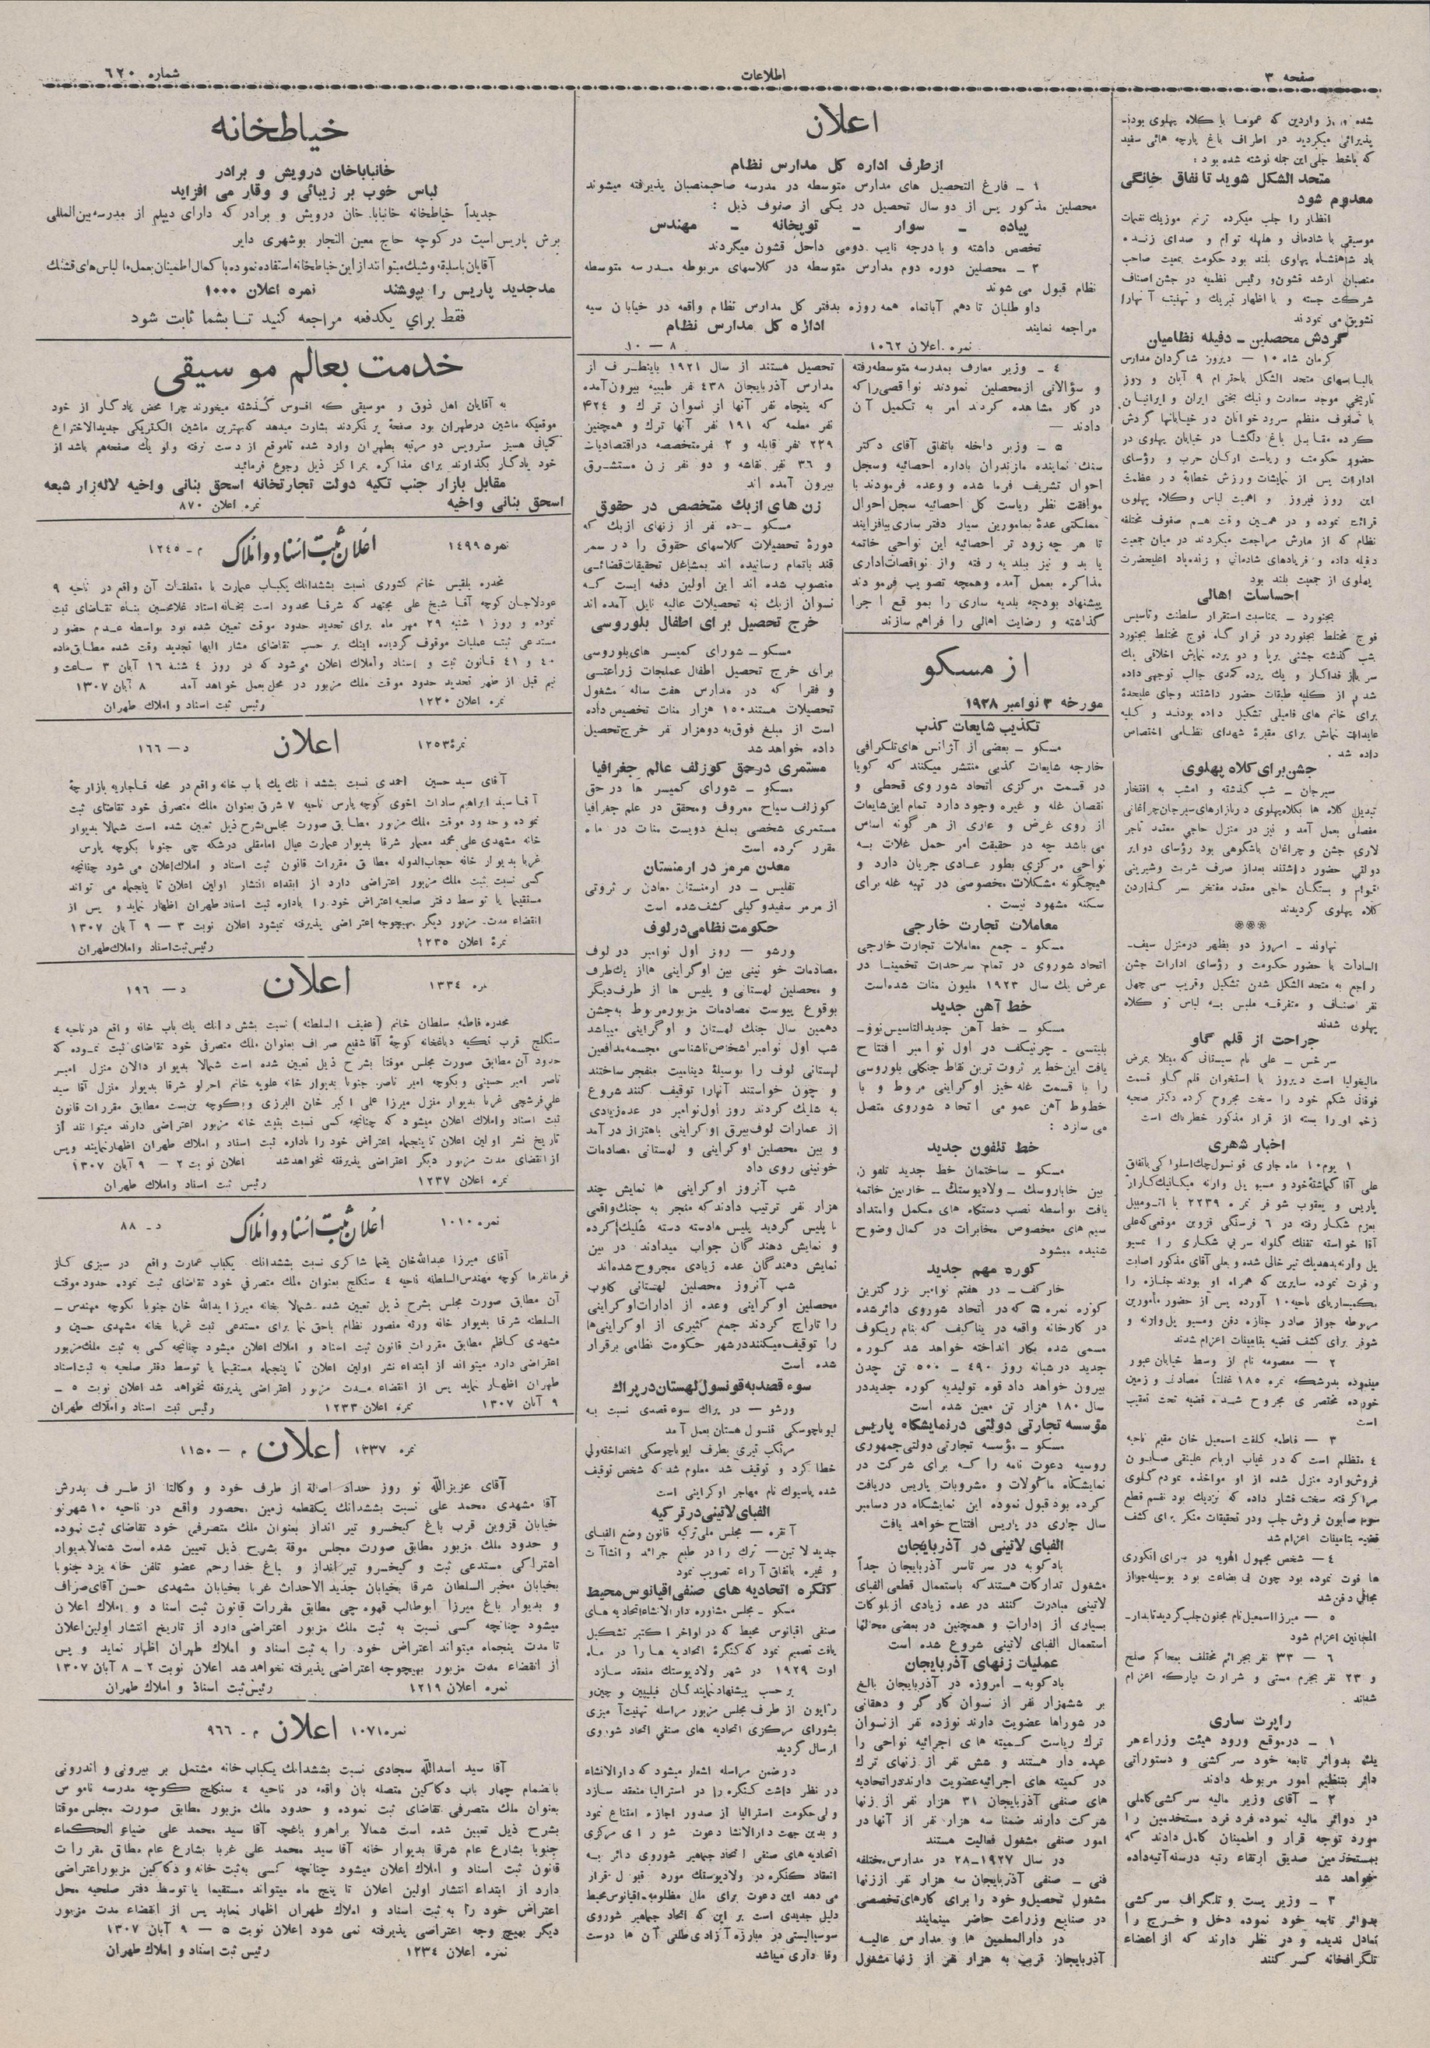 صفحه ۳
اطلاعات
شماره ٦٢٠
شده و از واردین که عموما با کلاه پهلوی بودند
پذیرائی میکردید در اطراف باغ پارچه هائی سفید
که باخط جلی این جمله نوشته شده بود :
متحد الشکل شوید تا نفاق خانگی
معدوم شود
انظار را جلب میکرده ترنم موزیک نغمات
موسیقی با شادمانی و هلهله توأم و صدای زنده
باد شاهنشاه پهلوی بلند بود حکومت بمعیت صاحب
منصبان ارشد قشون و رئیس نظمیه در جشن اصناف
شرکت جسته و با اظهار تبریک و تهنیت آنهارا
تشویق می نمودند
گردش محصلین ـ دفیله نظامیان
کرمان شاه ۱۰ — دیروز شاگردان مدارس
بالباسهای متحد الشکل باحترام ۹ آبان و روز
تاریخی موجد سعادت و نیک بختی ایران و ایرانیان
با صفوف منظم سرود خوانان در خیابانها گردش
کرده مقابل باغ دلگشا در خیابان پهلوی در
حضور حکومت و ریاست ارکان حرب و رؤسای
ادارات پس از نمایشات ورزش خطابهٔ در عظمت
این روز فیروز و اهمیت لباس وکلاه پهلوی
قرائت نموده و در همین وقت هم صفوف مختلفه
نظام که از مارش مراجعت میکردند در میان جمعیت
دفیله داده و فریادهای شادمانی و زنده‌باد اعلیحضرت
پهلوی از جمعیت بلند بود
احساسات اهالی
بجنورد ـ بمناسبت استقرار سلطنت وتأسیس
فوج مختلط بجنورد در قرار گاه فوج مختلط بجنورد
شب گذشته جشنی برپا و دو پرده نمایش اخلاقی یک
سرباز فداکار و یک پرده کمدی جالب توجهی داده
شد از کلیه طبقات حضور داشتند وجای علیحدهٔ
برای خانم های فامیلی تشکیل داده بودند و کلیه
عایدات نمایش برای مقبرهٔ شهدای نظامی اختصاص
داده شد .
جشن برای کلاه پهلوی
سیرجان ـ شب گذشته و امشب به افتخار
تبدیل کلاه ها بکلاه پهلوی در بازارهای سیرجان چراغانی
مفصلی بعمل آمد و نیز در منزل حاجی معتمد تاجر
لاری جشن و چراغان باشکوهی بود رؤسای دوایر
دولتی حضور داشتند بعداز صرف شربت وشیرینی
اقوام و بستگان حاجی معتمد مفتخر بسر گذاردن
کلاه پهلوی گردیدند
***
نهاوند ـ امروز دو بظهر درمنزل سیف‌ـ
السادات با حضور حکومت و رؤسای ادارات جشن
راجع به متحد الشکل شدن تشکیل وقریب سی چهل
نفر اصناف و متفرقه ملبس بـه لباس و کلاه
پهلوی شدند
جراحت از قلم گاو
سرخس ـ علی نام سیستانی که مبتلا بمرض
مالیخولیا است دیروز با استخوان قلم گاو قسمت
فوقانی شکم خود را سخت مجروح کرده دکتر صحیه
زخم او را بسته از قرار مذکور خطرناک است
اخبار شهری
۱ یوم۱۰ ماه جاری قونسول چک اسلواکی باتفاق
علی آقا گماشتهٔ خود و مسیو یل وارنه میکانیک کاراژ
پاریس و یعقوب شوفر نمره ۲۲۳۹ با اتومبیل
بعزم شکار رفته در ۶ فرسنگی قزوین موقعی که علی
آقا خواسته تفنک گلوله سربی شکاری را بمسیو
یل وارنه بدهد یک تیر خالی شده و بعلی آقای مذکور اصابت
و فوت نموده سایرین که همراه او بودند جنازه را
بکمیساریای ناحیه ۱۰ آورده پس از حضور مأمورین
مربوطه جواز صادر جنازه دفن ومسیو یل وارنه و
شوفر برای کشف قضیه بتأمینات اعزام شدند
۲ — معصومه نام از وسط خیابان عبور
مینموده بدرشکه نمره ۱۸۵ غفلتاً مصادف و زمین
خورده مختصری مجروح شده قضیه تحت تعقیب
است
۳ — فاطمه کلفت اسمعیل خان مقیم ناحیه
۴ متظلم است که در غیاب اربابم علینقی صابون
فروش وارد منزل شده از او مواخذه نمودم گلوی
مرا گرفته سخت فشار داده که نزدیک بود نفسم قطع
شود صابون فروش جلب ودر تحقیقات منکر برای کشف
قضیه بتأمینات اعزام شد
۴— شخص مجهول الهویه در سرای انگوری
ها فوت نموده بود چون بی بضاعت بود بوسیله جواز
مجانی دفن شد
۵ — میرزا اسمعیل نام مجنون جلب گردید تابدارـ
المجانین اعزام شود
۶ — ۳۳ نفر بجرائم مختلف بمحاکم صلح
و ۲۳ نفر بجرم مستی و شرارت بپارکه اعزام
شدند .
راپرت ساری
۱ ـ درموقع ورود هیئت وزراء هر
یک بدوائر تابعه خود سرکشی و دستوراتی
دائر بتنظیم امور مربوطه دادند
۲ ـ آقای وزیر مالیه سرکشی کاملی
در دوائر مالیه نموده فرد فرد مستخدمین را
مورد توجه قرار و اطمینان کامل دادند که
بمستخدمین صدیق ارتقاء رتبه درسنه آتیه داده
خواهد شد
۳ ـ وزیر پست و تلگراف سرکشی
بدوائر تابعه خود نموده دخل و خرج را
تعادل ندیده و در نظر دارند که از اعضاء
تلگرافخانه کسر کنند
اعلان
ازطرف اداره کل مدارس نظام
۱ ـ فارغ التحصیل های مدارس متوسطه در مدرسه صاحبمنصبان پذیرفته میشوند
محصلین مذکور پس از دو سال تحصیل در یکی از صفوف ذیل :
پیاده ـ سوار ـ توپخانه ـ مهندس
تخصص داشته و با درجه نایب دومی داخل قشون میگردند
۲ ـ محصلین دوره دوم مدارس متوسطه در کلاسهای مربوطه مدرسه متوسطه
نظام قبول می شوند
داو طلبان تا دهم آبانماه همه روزه بدفتر کل مدارس نظام واقعه در خیابان سپه
مراجعه نمایند
اداره کل مدارس نظام
نمره اعلان ۱۰۶۲
۸ — ۱۰
۴ ـ وزیر معارف بمدرسه متوسطه رفته
و سؤالاتی ازمحصلین نمودند نواقصی را که
در کار مشاهده کردند امر به تکمیل آن
دادند —
۵ ـ وزیر داخله باتفاق آقای دکتر
سنک نماینده مازندران باداره احصائیه وسجل
احوال تشریف فرما شده و وعده فرمودند با
موافقت نظر ریاست کل احصائیه سجل احوال
مملکتی عدهٔ بمامورین سیار دفتر ساری بیافزایند
تا هر چه زود تر احصائیه این نواحی خاتمه
یابد و نیز ببلدیه رفته واز نواقصات اداری
مذاکره بعمل آمده وهمچه تصویب فرمودند
پیشنهاد بودجه بلدیه ساری را بموقع اجرا
گذاشته و رضایت اهالی را فراهم سازند
از مسکو
مورخه ۳ نوامبر ۱۹۲۸
تکذیب شایعات کذب
مسکو ـ بعضی از آژانس های تلگرافی
خارجه شایعات کذبی منتشر میکنند که گویا
در قسمت مرکزی اتحاد شوروی قحطی و
نقصان غله و غیره وجود دارد تمام این شایعات
از روی غرض و عاری از هر گونه اساس
می باشد چه در حقیقت امر حمل غلات بـه
نواحی مرکزی بطور عادی جریان دارد و
هیچگونه مشکلات مخصوصی در تهیه غله برای
سکنه مشهود نیست .
معاملات تجارت خارجی
مسکو ـ جمع معاملات تجارت خارجی
اتحاد شوروی در تمام سرحدات تخمینا در
عرض یک سال ۱۹۲۳ ملیون منات شده است
خط آهن جدید
مسکو ـ خط آهن جدید التاسیس نووـ
بلیتسی ـ چرنیکف در اول نوامبر افتتاح
یافت این خط پر ثروت ترین نقاط جنگلی بلوروسی
را با قسمت غله خیز اوکراینی مربوط و با
خطوط آهن عمومی اتحاد شوروی متصل
می سازد :
خط تلفون جدید
مسکو ـ ساختمان خط جدید تلفون
بین خاباروسک ـ ولادیوستک ـ خاربین خاتمه
یافت بواسطه نصب دستگاه های مکمل وامتداد
سیم های مخصوص مخابرات در کمال وضوح
شنیده میشود
کوره مهم جدید
خارکف ـ در هفتم نوامبر بزرگترین
کوره نمره ۵ که در اتحاد شوروی دائر شده
در کارخانه واقعه در یناکیف که بنام ریکوف
مسمی شده بکار انداخته خواهد شد کوره
جدید در شبانه روز ۴۹۰ ـ ۵۰۰ تن چدن
بیرون خواهد داد قوه تولیدیه کوره جدید در
سال ۱۸۰ هزار تن معین شده است
مؤسسه تجارتی دولتی درنمایشگاه پاریس
مسکو ـ مؤسسه تجارتی دولتی جمهوری
روسیه دعوت نامه را که برای شرکت در
نمایشگاه ماکولات و مشروبات پاریس دریافت
کرده بود قبول نموده این نمایشگاه در دسامبر
سال جاری در پاریس افتتاح خواهد یافت
الفبای لاتینی در آذربایجان
بادکوبه در سر تاسر آذربایجان جداً
مشغول تدارکات هستند که باستعمال قطعی الفبای
لاتینی مبادرت کنند در عده زیادی ازبلوکات
بسیاری از ادارات و همچنین در بعضی محالها
استعمال الفبای لاتینی شروع شده است
عملیات زنهای آذربایجان
بادکوبه ـ امروزه در آذربایجان بالغ
بر ششهزار نفر از نسوان کارگر و دهقانی
در شوراها عضویت دارند نوزده نفر ازنسوان
ترک ریاست کمیته های اجرائیه نواحی را
عهده دار هستند و شش نفر از زنهای ترک
در کمیته های اجرائیه عضویت دارند دراتحادیه
های صنفی آذربایجان ۳۱ هزار نفر از زنها
شرکت دارند ضمنا سه هزار نفر از آنها در
امور صنفی مشغول فعالیت هستند
در سال ۱۹۲۷ـ۲۸ در مدارس مختلفه
فنی ـ صنفی آذربایجان سه هزار نفر اززنها
مشغول تحصیل و خود را برای کارهای تخصصی
در صنایع وزراعت حاضر مینمایند
در دارالمعلمین ها و مدارس عالیـه
آذربایجان قریب به هزار نفر از زنها مشغول
تحصیل هستند از سال ۱۹۲۱ باینطرف از
مدارس آذربایجان ۴۳۸ نفر طبیبه بیرون آمده
که پنجاه نفر آنها از نسوان ترک و ۴۲۴
نفر معلمه که ۱۹۱ نفر آنها ترک و همچنین
۲۳۹ نفر قابله و ۲ نفر متخصصه دراقتصادیات
و ۳۶ نفر نقاشه و دو نفر زن مستشرق
بیرون آمده اند
زن های ازبک متخصص در حقوق
مسکو ـ ده نفر از زنهای ازبک که
دورهٔ تحصیلات کلاسهای حقوق را در سمر
قند باتمام رسانیده اند بمشاغل تحقیقات قضائی
منصوب شده اند این اولین دفعه ایست کـه
نسوان ازبک به تحصیلات عالیه نایل آمده اند
خرج تحصیل برای اطفال بلوروسی
مسکو ـ شورای کمیسر های بلوروسی
برای خرج تحصیل اطفال عملجات زراعتی
و فقرا که در مدارس هفت ساله مشغول
تحصیلات هستند ۱۵۰ هزار منات تخصیص داده
است از مبلغ فوق به دوهزار نفر خرج تحصیل
داده خواهد شد
مستمری درحق کوزلف عالم جغرافیا
مسکو ـ شورای کمیسر ها در حق
کوزلف سیاح معروف ومحقق در علم جغرافیا
مستمری شخصی بمبلغ دویست منات در ماه
مقرر کرده است
معدن مرمر در ارمنستان
تفلیس ـ در ارمنستان معادن پر ثروتی
از مرمر سفیدوکیلی کشف شده است
حکومت نظامی در لوف
ورشو — روز اول نوامبر در لوف
مصادمات خونینی بین اوکراینی هااز یک طرف
و محصلین لهستانی و پلیس ها از طرف دیگر
بوقوع پیوست مصادمات مزبور مربوط به جشن
دهمین سال جنک لهستان و اوکراینی میباشد
شب اول نوامبر اشخاص ناشناسی مجسمه مدافعین
لهستانی لوف را بوسیلهٔ دینامیت منفجر ساختند
و چون خواستند آنهارا توقیف کنند شروع
به شلیک کردند روز اول نوامبر در عده زیادی
از عمارات لوف بیرق اوکراینی باهتزاز در آمد
و بین محصلین اوکراینی و لهستانی مصادمات
خونینی روی داد
شب آنروز اوکراینی ها نمایش چند
هزار نفر ترتیب دادند که منجر به جنک واقعی
با پلیس گردید پلیس هادسته دسته شلیک کرده
و نمایش دهند گان جواب میدادند در بین
نمایش دهندگان عده زیادی مجروح شده اند
شب آنروز محصلین لهستانی کلوب
محصلین اوکراینی وعده از ادارات اوکراینی
را تاراج کردند جمع کثیری از اوکراینی ها
را توقیف میکنند در شهر حکومت نظامی برقرار
شده است
سوء قصد به قونسول لهستان در پراک
ورشو — در پراک سوء قصدی نسبت بـه
لیوباچوسکی قنسول هستان بعمل آمد
مرتکب تیری بطرف لیوباچوسکی انداخته ولی
خطا کرد و توقیف شد معلوم شد که شخص توقیف
شده پاسیوک نام مهاجر اوکراینی است
الفبای لاتینی در ترکیه
آنقره — مجلس ملی ترکیه قانون وضع الفبای
جدید لاتین— ترک را در طبع جرائد و انشاآت
و غیره باتفاق آراء تصویب نمود
کنگره اتحادیه های صنفی اقیانوس محیط
مسکو ـ مجلس مشوره دارالانشاء اتحادیه های
صنفی اقیانوس محیط که دراواخر اکتبر تشکیل
یافت تصمیم نمود که کنگرهٔ اتحادیه ها را در ماه
اوت ۱۹۲۹ در شهر ولادیوستک منعقد سازد
بر حسب پیشنهاد نمایندگان فیلیپین و چین و
ژاپون از طرف مجلس مزبور مراسله تهنیت آمیزی
بشورای مرکزی اتحادیه های صنفی اتحاد شوروی
ارسال گردید
درضمن مراسله اشعار میشود که دارالانشاء
در نظر داشت کنگره را در استرالیا منعقد سازد
ولی حکومت استرالیا از صدور اجازه امتناع نمود
و بدین جهت دارالانشا دعوت شورای مرکزی
اتحادیه های صنفی اتحاد جماهیر شوروی دائر بـه
انعقاد کنگره در ولادیوستک مورد قبول قرار
می دهد این دعوت برای ملل مظلومه اقیانوس محیط
دلیل جدیدی است بر این که اتحاد جماهیر شوروی
سوسیالیستی در مبارزه آزادی طلبی آن ها دوست
وفا داری میباشد
خیاطخانه
خانباباخان درویش و برادر
لباس خوب بر زیبائی و وقار می افزاید
جدیداً خیاطخانه خانبابا خان درویش و برادر که دارای دیپلم از مدرسه بین المللی
برش پاریس است در کوچه حاج معین التجار بوشهری دایر
آقایان باسلیقه وشیک میتوانند از این خیاطخانه استفاده نموده با کمال اطمینان بعمل ما لباس های قشنک
مد جدید پاریس را بپوشند
نمره اعلان ۱۰۰۰
فقط برای یکدفعه مراجعه کنید تا بشما ثابت شود
خدمت بعالم موسیقی
به آقایان اهل ذوق و موسیقی که افسوس گذشته میخورند چرا محض یادگار از خود
موقعیکه ماشین در طهران بود صفحهٔ پر نکردند بشارت میدهد که بهترین ماشین الکتریکی جدید الاختراع
کمپانی هیسز سترویس دو مرتبه بطهران وارد شده تاموقع از دست نرفته ولو یک صفحه‌هم باشد از
خود یادگار بگذارند برای مذاکره بمراکز ذیل رجوع فرمائید
مقابل بازار جنب تکیه دولت تجارتخانه اسحق بنانی واخیه لاله زار شعبه
اسحق بنانی واخیه
نمره اعلان ۸۷۰
نمره ۱۴۹۹۵
اعلان ثبت اسناد و املاک
م ـ ۱۲۴۵
مخدره بلقیس خانم کشوری نسبت بششدانک یکباب عمارت با متعلقات آن واقع در ناحیه ۹
عودلاجان کوچه آقا شیخ علی مجتهد که شرقا محدود است بخانه استاد غلامحسین بناء تقاضای ثبت
نموده و روز ۱ شنبه ۲۹ مهر ماه برای تحدید حدود موقت تعیین شده بود بواسطه عدم حضور
مستدعی ثبت عملیات موقوف گردیده اینک بر حسب تقاضای مشار الیها تجدید وقت شده مطابق ماده
۴۰ و ۴۱ قانون ثبت و اسناد و املاک اعلان میشود که در روز ۴ شنبه ۱۶ آبان ۳ ساعت و
نیم قبل از ظهر تحدید حدود موقت ملک مزبور در محل بعمل خواهد آمد
۸ آبان ۱۳۰۷
نمره اعلان ۱۲۲۰
رئیس ثبت اسناد و املاک طهران
نمرهٔ ۱۲۵۳
اعلان
د— ۱۶۶
آقای سید حسین احمدی نسبت بششدانک یک باب خانه واقع در محله قاجاریه بازارچهٔ
آقا سید ابراهیم سادات اخوی کوچه پارس ناحیه ۷ شرق بعنوان ملک متصرفی خود تقاضای ثبت
نموده و حدود موقت ملک مزبور مطابق صورت مجلس بشرح ذیل تعیین شده است شمالا بدیوار
خانه مشهدی علی محمد معمار شرقا بدیوار عمارت عیال امامقلی درشکه چی جنوبا بکوچه پارس
غربا بدیوار خانه حجاب الدوله مطابق مقررات قانون ثبت اسناد و املاک اعلان می شود چنانچه
کسی نسبت ثبت ملک مزبور اعتراضی دارد از ابتداء انتشار اولین اعلان تا پنجماه می تواند
مستقیما یا توسط دفتر صلحیه اعتراض خود را باداره ثبت اسناد طهران اظهار نماید و پس از
انقضاء مدت مزبور دیگر بهیچوجه اعتراضی پذیرفته نمیشود اعلان نوبت ۳ — ۹ آبان ۱۳۰۷
نمرهٔ اعلان ۱۲۳۵
رئیس ثبت اسناد و املاک طهران
نمره ۱۳۳۴
اعلان
د— ۱۹۶
مخدره فاطمه سلطان خانم (عفیف السلطنه) نسبت بشش دانک یک باب خانه واقع در ناحیه ۴
سنگلج قرب تکیه دباغخانه کوچه آقا شفیع صراف بعنوان ملک متصرفی خود تقاضای ثبت نموده که
حدود آن مطابق صورت مجلس موقتا بشرح ذیل تعیین شده است شمالا بدیوار دالان منزل امیر
ناصر امیر حسینی وبکوچه امیر ناصر جنوبا بدیوار خانه علویه خانم احراو شرقا بدیوار منزل آقا سید
علی فرشچی غربا بدیوار منزل میرزا علی اکبر خان البرزی و بکوچه بن بست مطابق مقررات قانون
ثبت اسناد واملاک اعلان میشود که چنانچه کسی نسبت بثبت خانه مزبور اعتراضی دارند میتوانند از
تاریخ نشر اولین اعلان تا پنجماه اعتراض خود را باداره ثبت اسناد و املاک طهران اظهار نمایند وپس
از انقضای مدت مزبور دیگر اعتراضی پذیرفته نخواهد شد
اعلان نوبت ۲ — ۹ آبان ۱۳۰۷
نمره اعلان ۱۲۳۷
رئیس ثبت اسناد و املاک طهران
نمره ۱۰۱۰
اعلان ثبت اسناد و املاک
د— ۸۸
آقای میرزا عبدالله خان یغما شاکری نسبت بششدانک یکباب عمارت واقع در سبزی کار
فرمانفرما کوچه مهندس السلطنه ناحیه ۴ سنگلج بعنوان ملک متصرفی خود تقاضای ثبت نموده حدود موقت
آن مطابق صورت مجلس بشرح ذیل تعیین شده شمالا بخانه میرزا یدالله خان جنوبا بکوچه مهندس ـ
السلطنه شرقا بدیوار خانه ورثه منصور نظام باحق نما برای مستدعی ثبت غربا بخانه مشهدی حسین و
مشهدی کاظم مطابق مقررات قانون ثبت اسناد و املاک اعلان میشود چنانچه کسی به ثبت ملک مزبور
اعتراضی دارد میتواند از ابتداء نشر اولین اعلان تا پنجماه مستقیما یا توسط دفتر صلحیه به ثبت اسناد
طهران اظهار نماید پس از انقضاء مدت مزبور اعتراضی پذیرفته نخواهد شد اعلان نوبت ۵ ـ
۹ آبان ۱۳۰۷
نمره اعلان ۱۲۳۳
رئیس ثبت اسناد و املاک طهران
نمره ۱۳۳۷
اعلان
م — ۱۱۵۰
آقای عزیزالله نو روز حداد اصالة از طرف خود و وکالتا از طرف پدرش
آقا مشهدی محمد علی نسبت بششدانک یکقطعه زمین محصور واقع در ناحیه ۱۰ شهر نو
خیابان قزوین قرب باغ کیخسرو تیر انداز بعنوان ملک متصرفی خود تقاضای ثبت نموده
و حدود ملک مزبور مطابق صورت مجلس موقة بشرح ذیل تعیین شده است شمالا بدیوار
اشتراکی مستدعی ثبت و کیخسرو تیر انداز و باغ خدا رحم عضو تلفن خانه یزد جنوبا
بخیابان مخبر السلطان شرقا بخیابان جدید الاحداث غربا بخیابان مشهدی حسن آقای صراف
و بدیوار باغ میرزا ابوطالب قهوه چی مطابق مقررات قانون ثبت اسناد و املاک اعلان
میشود چنانچه کسی نسبت به ثبت ملک مزبور اعتراضی دارد از تاریخ انتشار اولین اعلان
تا مدت پنجماه میتواند اعتراض خود را به ثبت اسناد و املاک طهران اظهار نماید و پس
از انقضاء مدت مزبور بهیچوجه اعتراضی پذیرفته نخواهد شد اعلان نوبت ۲ـ ۸ آبان ۱۳۰۷
نمره اعلان ۱۲۱۹
رئیس ثبت اسناد و املاک طهران
نمره ۱۰۷۱
اعلان
م ـ ۹۶۶
آقا سید اسدالله سجادی نسبت بششدانک یکباب خانه مشتمل بر بیرونی و اندرونی
بانضمام چهار باب دکاکین متصله بان واقعه در ناحیه ۴ سنگلج کوچه مدرسه ناموس
بعنوان ملک متصرفی تقاضای ثبت نموده و حدود ملک مزبور مطابق صورت مجلس موقتا
بشرح ذیل تعیین شده است شمالا براهرو باغچه آقا سید محمد علی ضیاع الحکماء
جنوبا بشارع عام شرقا بدیوار خانه آقا سید محمد علی غربا بشارع عام مطابق مقررات
قانون ثبت اسناد و املاک اعلان میشود چنانچه کسی به ثبت خانه و دکاکین مزبور اعتراضی
دارد از ابتداء انتشار اولین اعلان تا پنج ماه میتواند مستقیما یا توسط دفتر صلحیه محل
اعتراض خود را به ثبت اسناد و املاک طهران اظهار نماید پس از انقضاء مدت مزبور
دیگر بهیچ وجه اعتراضی پذیرفته نمی شود اعلان نوبت ۵ — ۹ آبان ۱۳۰۷
نمره اعلان ۱۲۳۴
رئیس ثبت اسناد و املاک طهران